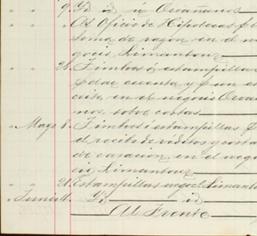 " " 9. Yd id á Ocañanos
Al Oficio de Hipotecas p
toma de razon en el n
gocio Limantour
" " 28. Timbres ó estampillas
p dar cuenta y p un es
crito en el negocio Ocaa
nos sobre costas
" Mayo 8. Timbres i estampillas p
el recibo de réditos y costas
de casacion en el nego
cio Limantour
" " 21. Estampillas negocio Limanto
" Junio 1. Yd id
Al Frente